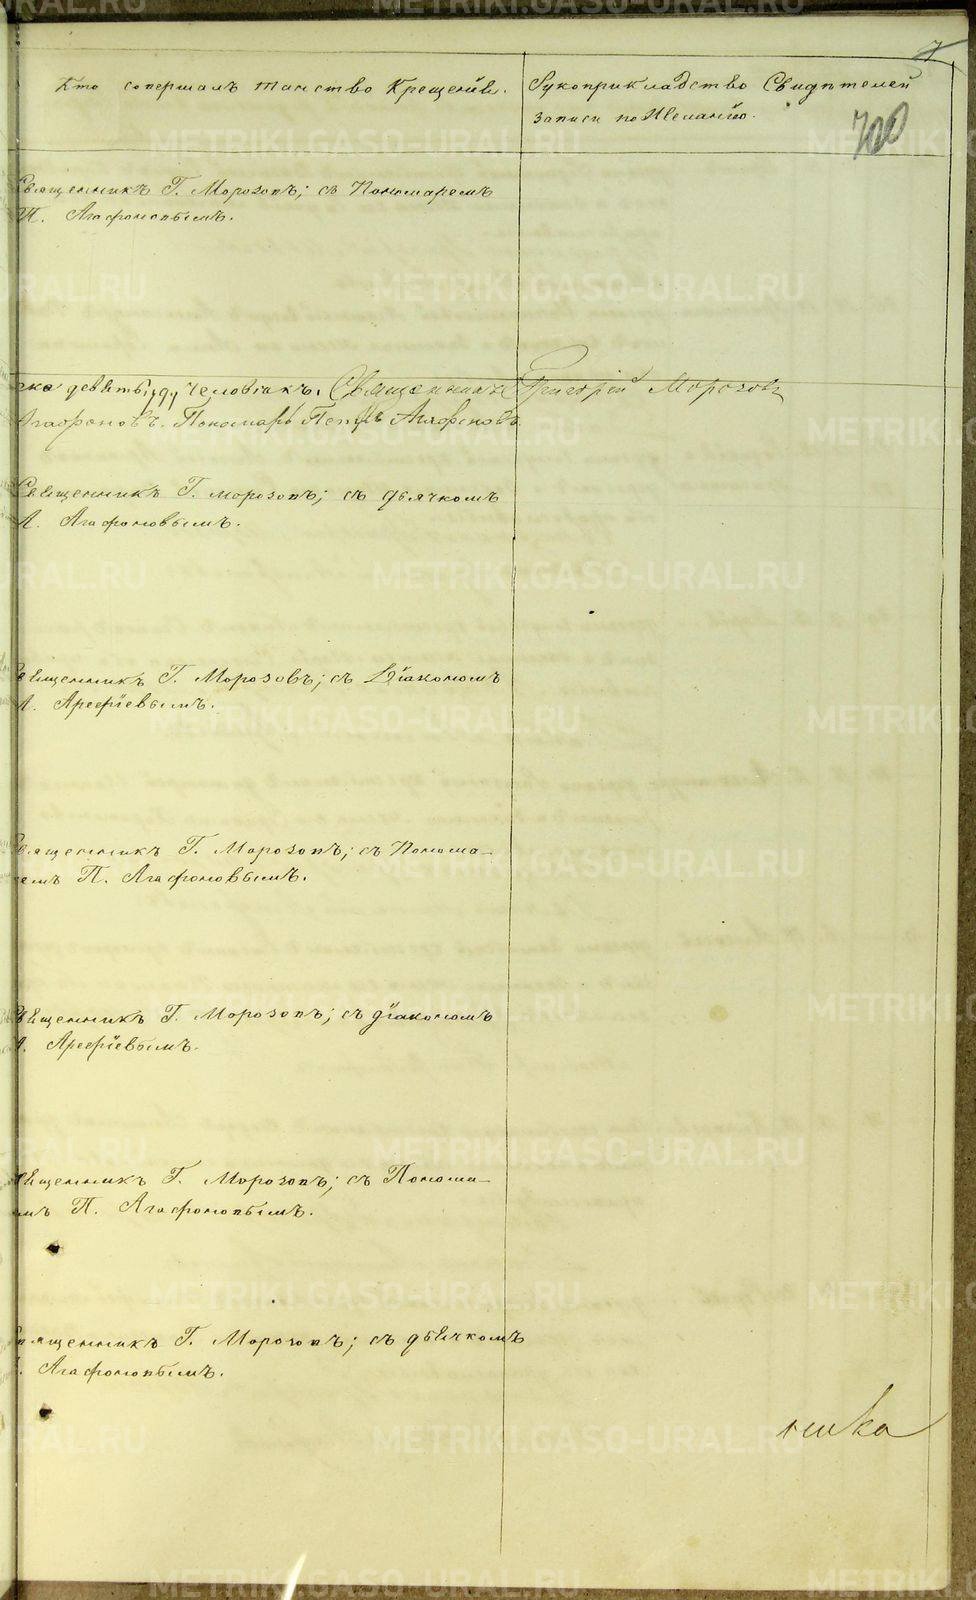 7
Кто совершалъ таинство Крещенія.
Рукоприкладство Свидѣтелей
записи по Желанію.
700
Священникъ Г. Морозовъ; съ Пономаремъ
П. Агафоновымъ.
девять /9/ человѣкъ. Священникъ Григорій Морозовъ
Агафоновъ. Пономарь Петръ Агафоновъ
Священникъ Г. Морозовъ; съ дьячкомъ
А. Агафоновымъ.
Священникъ Г. Морозовъ; съ Діакономъ
А. Арефіевымъ.
Священникъ Г. Морозовъ; съ Понома-
ремъ П. Агафоновымъ.
Священникъ Г. Морозовъ; съ діакономъ
А. Арефіевымъ.
Священникъ Г. Морозовъ; съ Понома-
емъ П. Агафоновымъ.
Священникъ Г. Морозовъ; съ дьячкомъ
Агафоновымъ.
METRIKI.GASO-URAL.RU